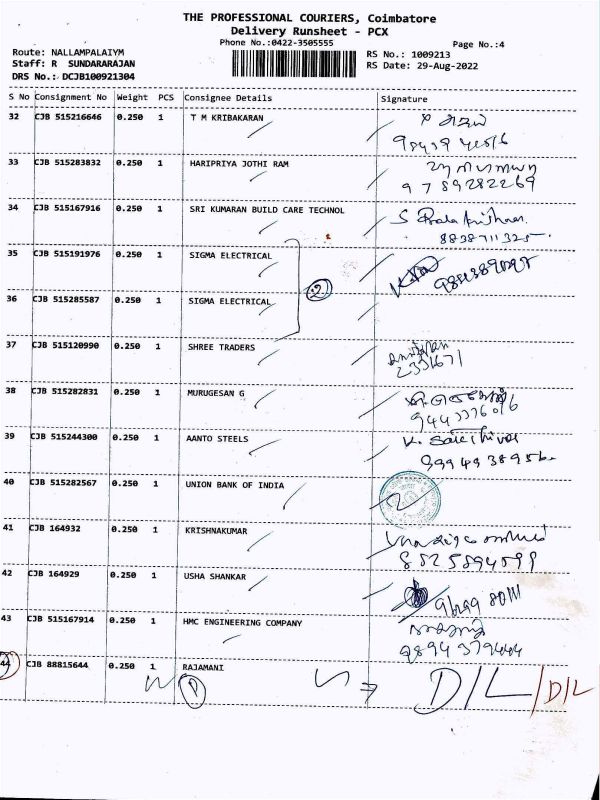 THE PROFESSIONAL COURIERS, Coimbatore
Delivery Runsheet - PCX
Phone No.:0422-3505555
Page No.:4
Route: NALLAMPALAIYM
RS No.: 1009213
Staff: R SUNDARARAJAN
RS Date: 29-Aug-2022
DRS No.: DCJB100921304
S No Consignment No Weight PCS Consignee Details Signature
32 CJB 515216646 0.250 1 T M KRIBAKARAN
33 CJB 515283832 0.250 1 HARIPRIYA JOTHI RAM
9789282269
34 CJB 515167916 0.250 1 SRI KUMARAN BUILD CARE TECHNOL
8838711325
35 CJB 515191976 0.250 1 SIGMA ELECTRICAL
2
36 CJB 515285587 0.250 1 SIGMA ELECTRICAL
37 CJB 515120990 0.250 1 SHREE TRADERS
2331671
38 CJB 515282831 0.250 1 MURUGESAN G
39 CJB 515244300 0.250 1 AANTO STEELS
K. Sakthivel
9994938956
40 CJB 515282567 0.250 1 UNION BANK OF INDIA
41 CJB 164932 0.250 1 KRISHNAKUMAR
42 CJB 164929 0.250 1 USHA SHANKAR
43 CJB 515167914 0.250 1 HMC ENGINEERING COMPANY
9894379444
44 CJB 88815644 0.250 1 RAJAMANI
D/L/D/L